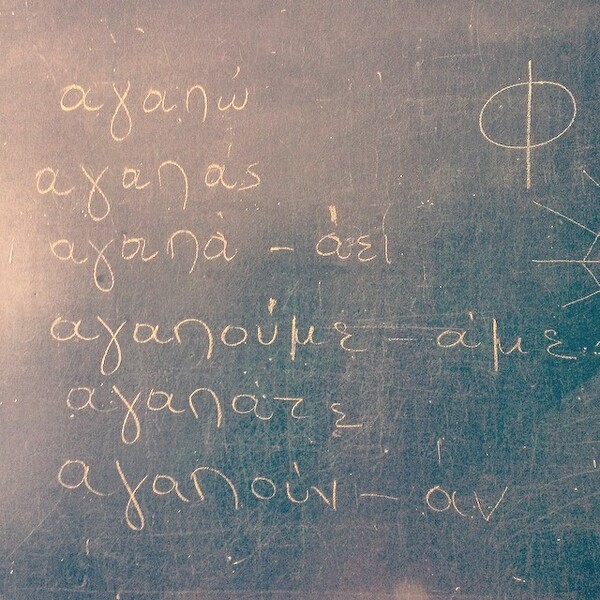 αγαπώ
Φ
αγαπάς
αγαπά - άει
αγαπούμε - άμε
αγαπάτε
αγαπούν - άν